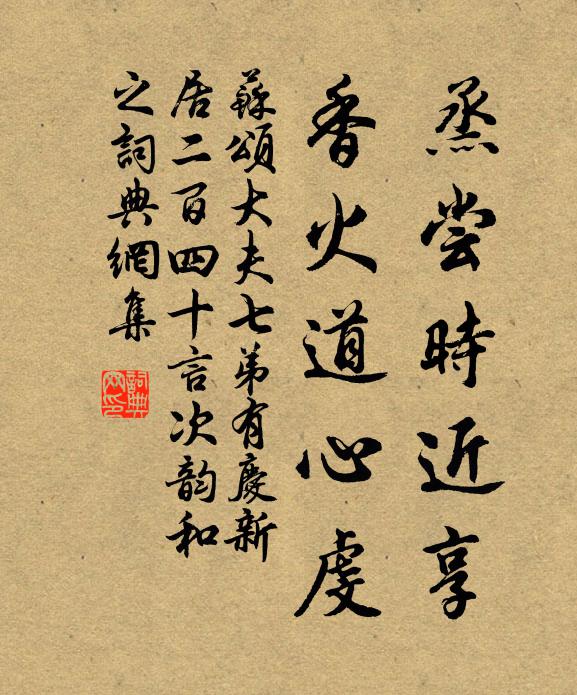 烝嘗時近享
香火道心虔
蘇頌大夫七弟有慶新
居二百四十言次韵和
之詞典網集
詞典
网印